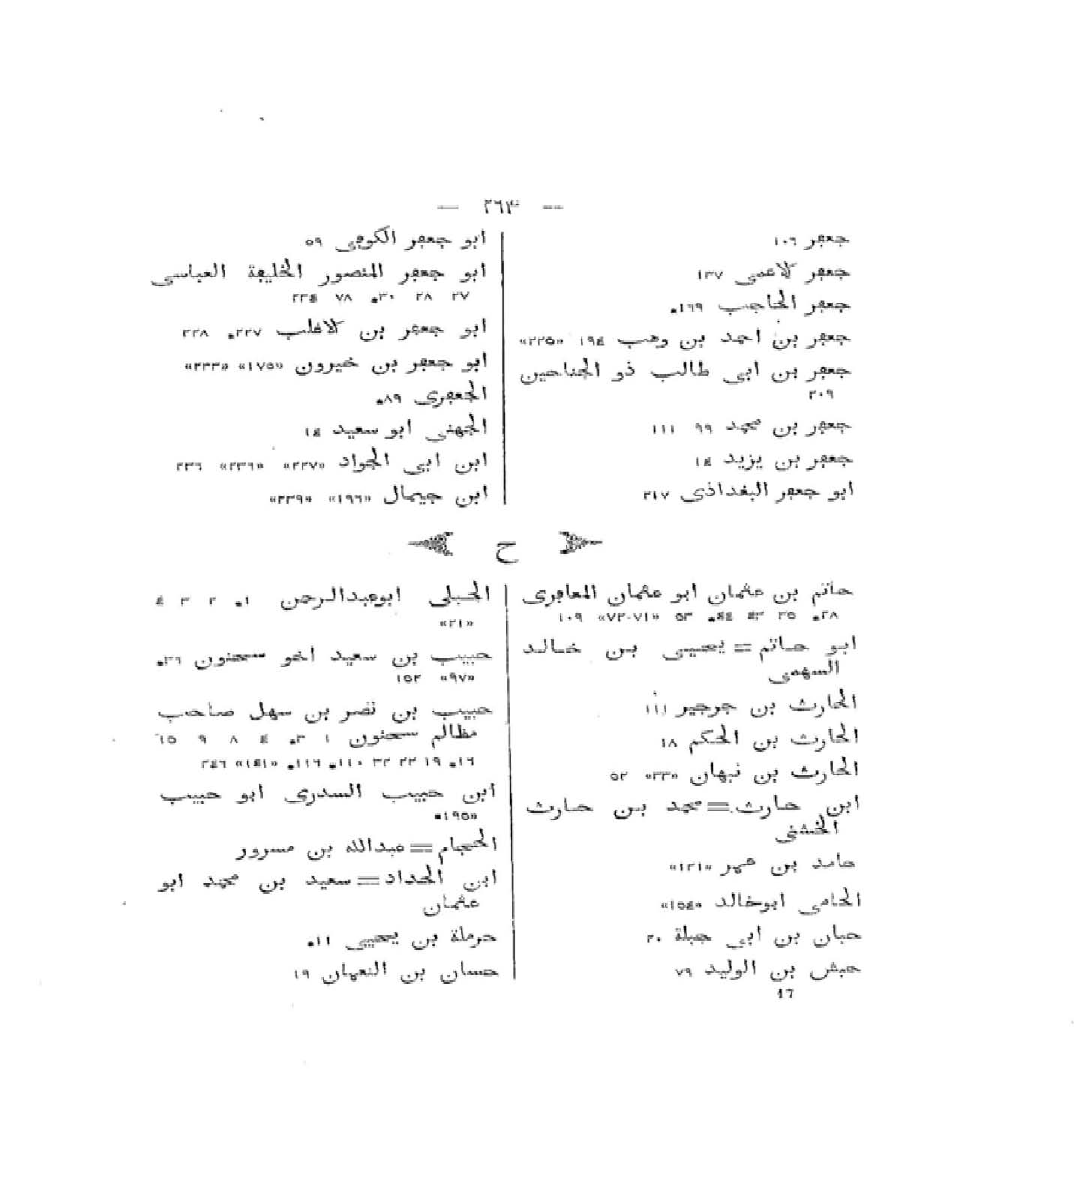 — ٢٦٣ —
جعفر ١٠٦
جعفر الاعمى ١٣٧
جعفر الحاجب ١٦٩
جعفر بن احمد بن وهب ١٩٤ «٢٢٥»
جعفر بن ابى طالب ذو الجناحين
٢٠٩
جعفر بن محمد ٩٩ ١١١
جعفر بن يزيد ١٤
ابو جعفر البغداذى ٢١٧
ابو جعفر الكوفى ٥٩
ابو جعفر المنصور الخليفة العباسى
٢٧ ٢٨ ٣٠ ٧٨ ٢٣٤
ابو جعفر بن الاغلب ٢٢٧ ٢٢٨
ابو جعفر بن خيرون «١٧٥» «٢٣٣»
الجعفرى ٨٩
الجهنى ابو سعيد ١٤
ابن ابى الجواد «٢٢٧» «٢٣٦» ٢٣٦
ابن جيمال «١٩٦» «٢٣٩»
ح
حاتم بن عثمان ابو عثمان المعافرى
٢٨ ٣٥ ٤٣ ٤٤ ٥٣ «٧١-٧٢» ١٠٩
ابو حاتم = يحيى بن خالد
السهمى
الحارث بن جرجير ١١١
الحارث بن الحكم ١٨
الحارث بن نبهان «٣٣» ٥٢
ابن حارث = محمد بن حارث
الخشنى
حامد بن عمر «١٢١»
الحامى ابو خالد «١٥٤»
حبان بن ابى جبلة ٢٠
حبش بن الوليد ٧٩
17
الحبلى ابو عبد الرحمن ١ ٢ ٣ ٤
«٢١»
حبيب بن سعيد اخو سحنون ٣٦
«٩٧» ١٥٢
حبيب بن نصر بن سهل صاحب
مظالم سحنون ١ ٣ ٤ ٨ ٩ ١٥
١٦ ١٩ ٢٣ ٣٢ ١١٠ ١١٦ «١٤١» ٢٤٦
ابن حبيب السدرى ابو حبيب
«١٩٥»
الحجام = عبد الله بن مسرور
ابن الحداد = سعيد بن محمد ابو
عثمان
حرملة بن يحيى ١١
حسان بن النعمان ١٩